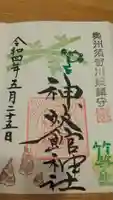 奥州須賀川総鎮守
神炊館神社
令和四年五月二十五日